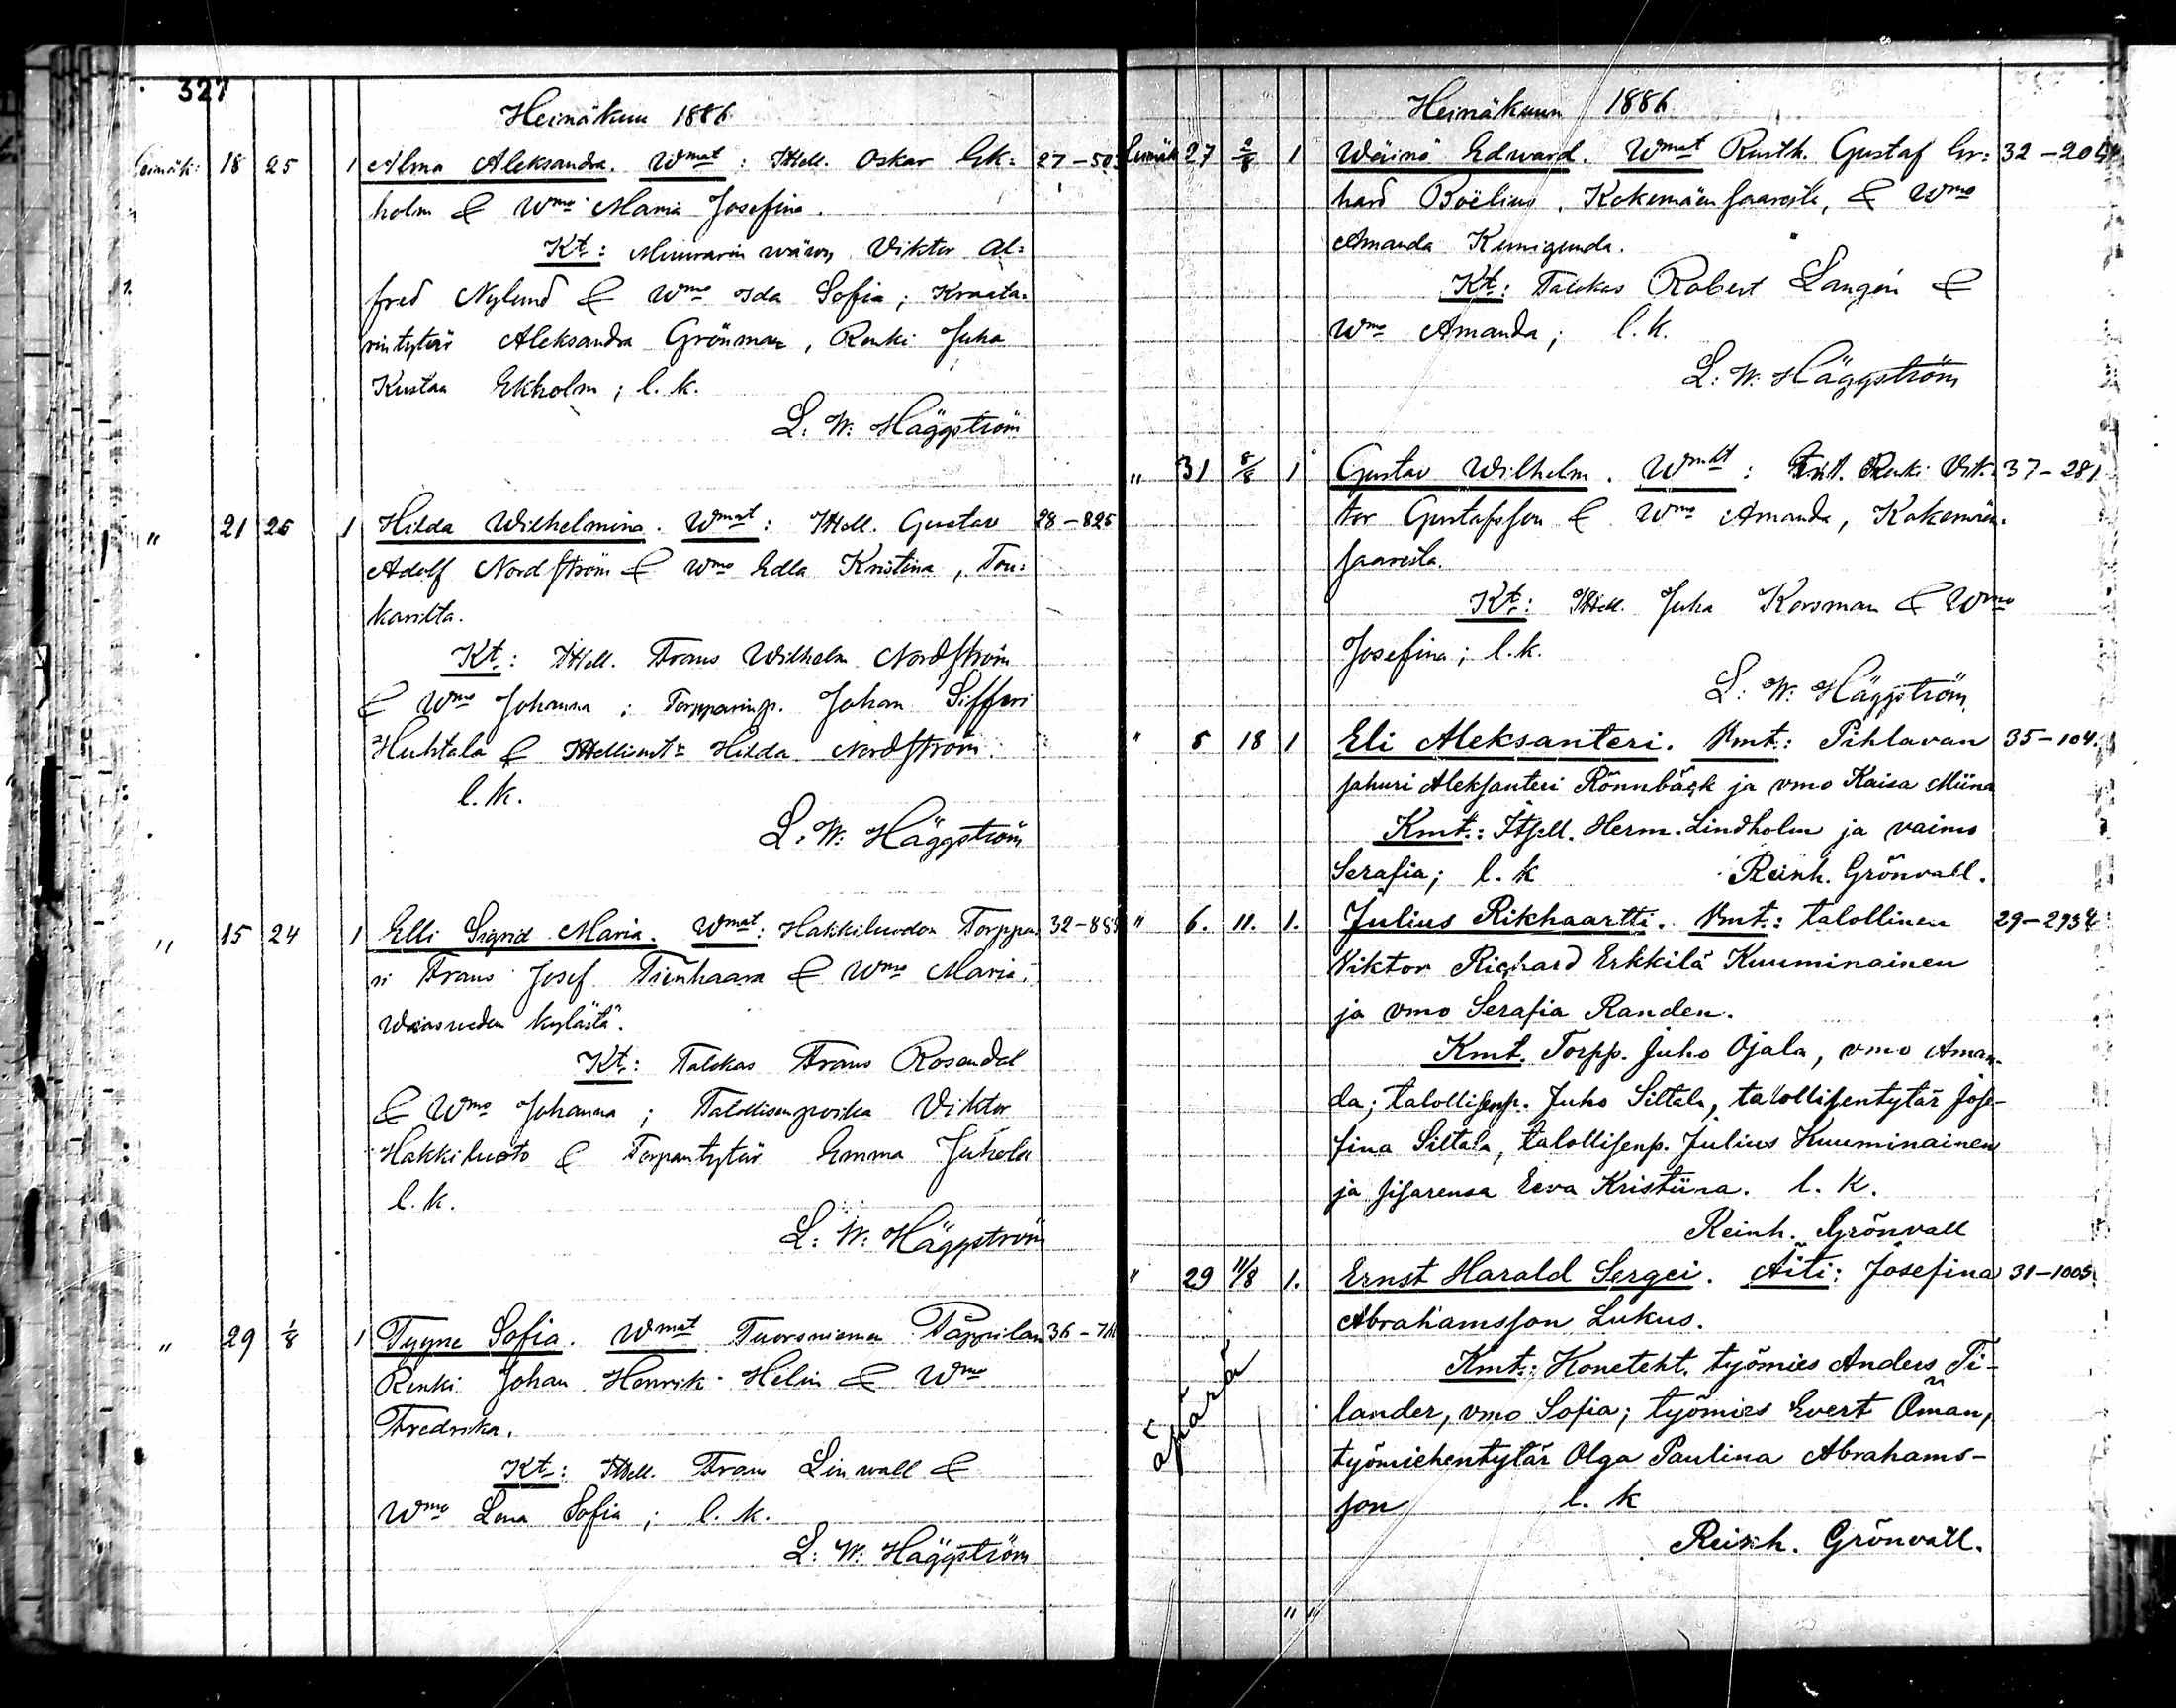 327
Heinäkuu 1886
18 25 1 Alma Aleksandra. Wmat: Itsell. Oskar Ek= 27–50
holm & Wmo Maria Josefina.
Kt: Muurarin Viktor Al=
fred Nylund & Wmo Ida Sofia; Kraata-
rintytär Aleksandra Grönman, Renki Juha
Kustaa Ekholm; l. k.
L. W. Häggström
" 21 25 1 Hilda Wilhelmina. Wmat: Itsell. Gustav 28–825
Adolf Nordström & Wmo Edla Kristina, Tou=
karilta.
Kt: Itsell. Frans Wilhelm Nordström
& Wmo Johanna; Torpparinp. Johan Sifferi
Huhtala & Itsellisent: Hilda Nordström
l. k.
L. W. Häggström
" 15 24 1 Elli Sigrid Maria. Wmat: Hakkiluodon Torppa 32–88
ri Frans Josef Tienhaara & Wmo Maria,
kylästä.
Kt: Talokas Frans Rosendal
& Wmo Johanna; Talollisenpoika Viktor
Hakkiluoto & Torpantytär Emma Juhola
l. k.
L. W. Häggström
" 29 1/8 1 Tyyne Sofia. Wmat Tuorsniemen Pappilan 36–
Renki Johan Henrik Helin & Wmo
Fredrika.
Kt: Itsell. Frans Linwall &
Wmo Lena Sofia; l. k.
L. W. Häggström
Heinäkuun 1886
Heinäk 27 2/8 1 Wäinö Edward. Wmat Rusth. Gustaf Er= 32–204
hard Boëlius, Kokemäensaaresta, & Wmo
Amanda Kunigunda.
Kt: Talokas Robert Langén &
Wmo Amanda; l. k.
L. W. Häggström
" 31 8/8 1 Gustav Wilhelm. Wmat: Renki Vik- 37–281
tor Gustafsson & Wmo Amanda, Kokemäen-
saaresta.
Kt: Itsell. Juha Korsman & Wmo
Josefina; l. k.
L. W. Häggström
" 5 18 1 Eli Aleksanteri. Vmt: Pihlavan 35–104.
sahuri Aleksanteri Rönnbäck ja vmo Kaisa Miina
Kmt: Itsell. Herm. Lindholm ja vaimo
Serafia; l. k Reinh. Grönvall.
" 6. 11. 1. Julius Rikhaartti. Vmt: talollinen 29–293
Viktor Richard Erkkilä Kuuminainen
ja vmo Serafia Randen.
Kmt. Torpp. Juho Ojala, vmo Aman-
da; talollisenp. Juho Siltala, talollisentytär Jose-
fina Siltala, talollisenp. Julius Kuuminainen
ja sisarensa Eeva Kristiina. l. k.
Reinh. Grönvall
" 29 11/8 1. Ernst Harald Sergei. Äiti: Josefina 31–1005.
Abrahamsson Lukus.
Kmt: Koneteht. työmies Anders Ti-
äpärä lander, vmo Sofia; työmies Evert Öman,
työmiehentytär Olga Paulina Abrahams-
son l. k
Reinh. Grönvall.
" "